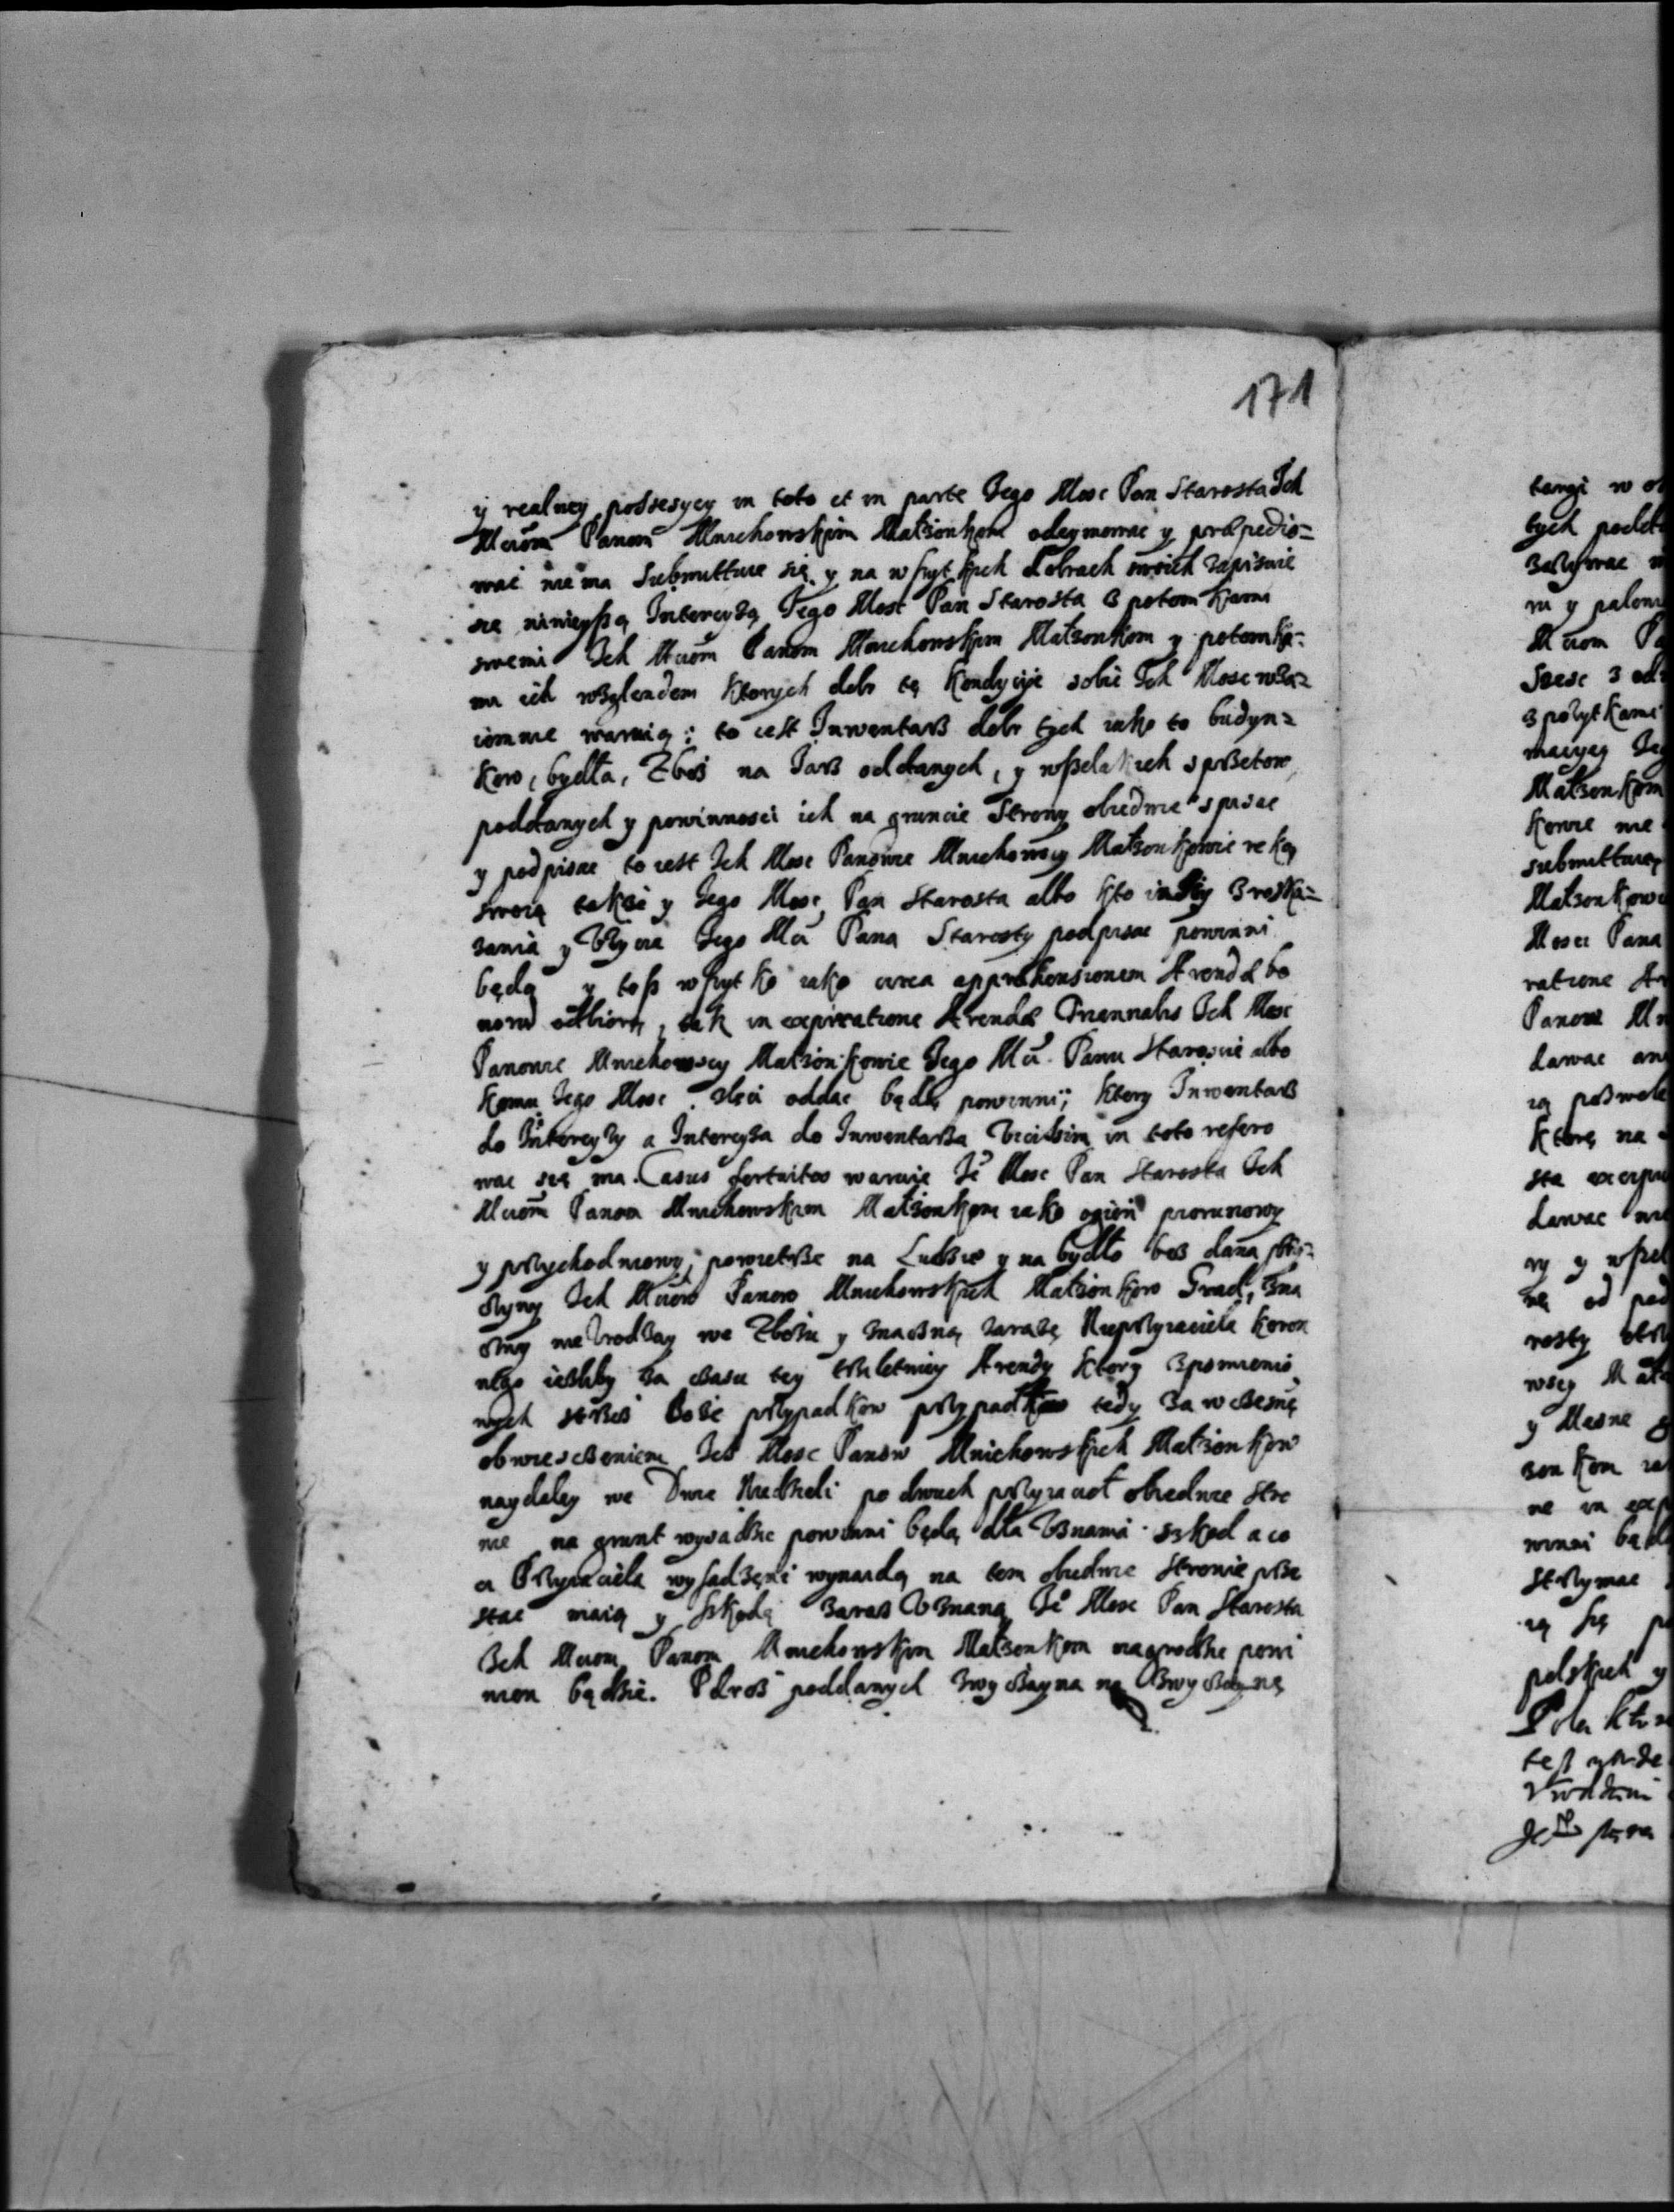 171
y realney possesyey in toto et in parte Jego Mosc Pan Starosta Ich
Mciom Panom Mnichowskim Malzonkom odeymowac y præpedio=
wac nie ma submittuie się y na wszytkich dobrach swoich zapisuie
się ninieyszą Intercyzą Jego Mosc Pan Starosta z potomkami
swemi Ich Mciom Panom Mnichowskim Malzonkom y potomko=
m ich wzglendem ktorych dobr tę kondycyie sobie Ich Mosc wza=
iomnie waruią: to iest Inwentarz dobr tych iako to budyn=
kow, bydła, Zboz na Jarz oddanych, y wszelakich sprzetow
poddanych y powinnosci ich na gruncie Strony obiedwie spisac
y podpisac to iest Ich Mosc Panowie Mnichowscy Malzonkowie ręką
swoią takze y Jego Mosc Pan Starosta albo kto inszy z roska=
zania y Uzycia Jego Mci Pana Starosty podpisac powinni
będą y tosz wszytko iako circa apprehensionem Arendæ bo
norum odbiorą, tak in expiratione Arendæ Triennalis Ich Mosc
Panowie Mnichowscy Malzonkowie Jego Mci Panu Staroscie albo
komu Jego Mosc zleci oddac będą powinni; ktory Inwentarz
do Intercyzy a Intercyza do Inwentarza Vicissim in toto refero
wac się ma. Casus fortuitos waruie Je Mosc Pan Starosta Ich
Mciom Panom Mnichowskim Malzonkom iako ogien piorunowy
y przychodniowy, powietrze na Ludzie y na bydło bez dania przy=
czyny Ich Mciow Panow Mnichowskich Malzonkow Grad, zna
czny nieUrodzay we Zbozu y znaczną zarazę Nieprzyiaciela koron
nego iezliby za czasu tey trzletniey Arendy ktory zpomienio
nych strzez Boze przypadkow przypadł tedy za wczesnę
obwiesczeniem Ich Mosc Panow Mnichowskich Malzonkow
naydaley we Dwie Niedzieli po dwuch przyiacioł obiedwie Stro
nie na grunt wywadzic powinni będą dla Uznania szkod a co
ci Przyiaciele wysadzęni wynaidą na tem obiedwie Stronie prze
stac maią y szkodę zaraz Uznaną Je Mosc Pan Starosta
Ich Mciom Panom Mnichowskim Malzonkom nagrodzic powi
nien będzie. Pdroz poddanych zwyczayna na zwyczayną